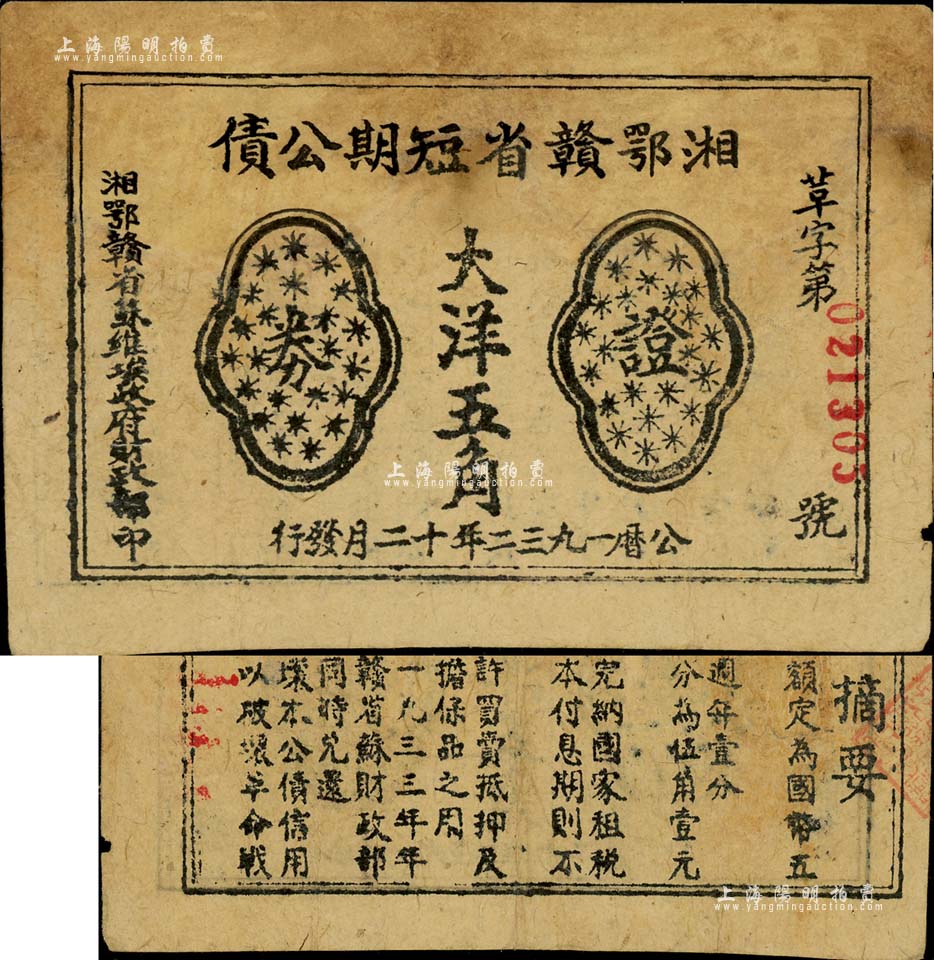 上海陽明拍賣
www.yangmingauction.com
湘鄂贛省短期公債
草字第
021305
號
證
大洋五角
券
湘鄂贛省蘇維埃政府財政部印
公曆一九三二年十二月發行
上海陽明拍賣
www.yangmingauction.com
摘要
額定為國幣五
週年壹分
分為伍角壹元
完納國家租稅
本付息期則不
許買賣抵押及
擔保品之用
一九三三年年
贛省蘇財政部
同時兌還
壞本公債信用
以破壞革命戰
上海陽明拍賣
www.yangmingauction.com